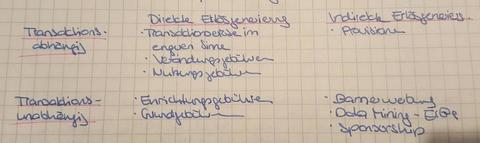 Direkte Erlösgenerierung
Indirekte Erlösgenerier.
Transaktions-
abhängig
· Transaktionserlöse im
engeren Sinne
· Verbindungsgebühren
· Nutzungsgebühren
· Provisionen
Transaktions-
unabhängig
· Einrichtungsgebühren
· Grundgebühren
· Bannerwerbung
· Data Mining - Erlöse
· Sponsorship